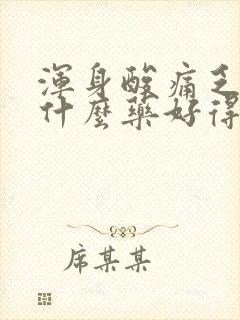 渾身酸痛乏
什麼藥好得
席某某